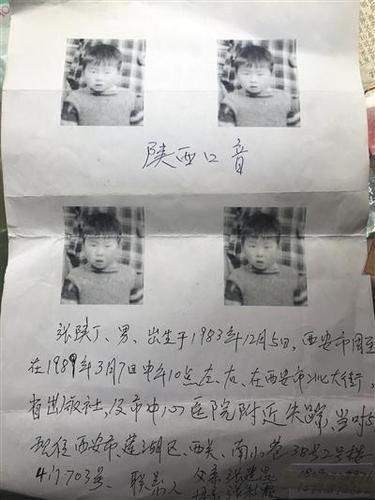 陕西口音
张陕丁、男、出生于1983年12月5日,西安市周至
在1989年3月7日中午10点左、右、在西安市北大街,
省出版社,及市中心医院附近失踪、当时5
现住西安市莲湖区、西关、南小巷38号2号楼
4门703号 联系人 父亲